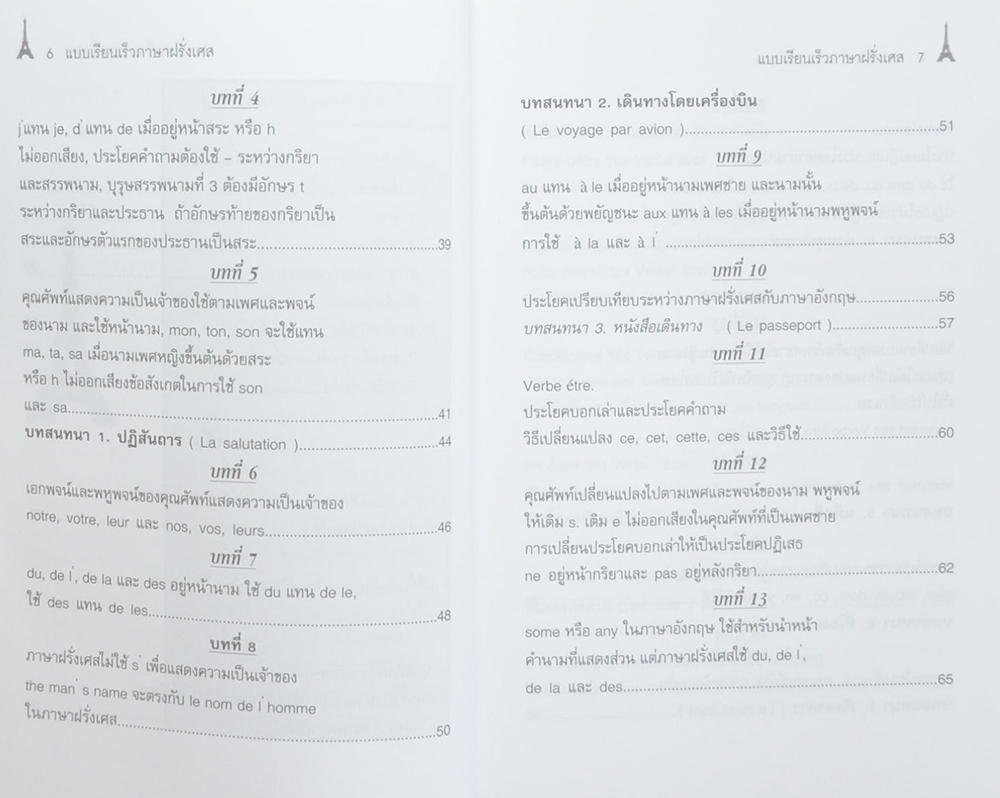 6 แบบเรียนเร็วภาษาฝรั่งเศส
บทที่ 4
j'แทน je, d' แทน de เมื่ออยู่หน้าสระ หรือ h
ไม่ออกเสียง, ประโยคคำถามต้องใช้ – ระหว่างกริยา
และสรรพนาม, บุรุษสรรพนามที่ 3 ต้องมีอักษร t
ระหว่างกริยาและประธาน ถ้าอักษรท้ายของกริยาเป็น
สระและอักษรตัวแรกของประธานเป็นสระ..................................39
บทที่ 5
คุณศัพท์แสดงความเป็นเจ้าของใช้ตามเพศและพจน์
ของนาม และใช้หน้านาม, mon, ton, son จะใช้แทน
ma, ta, sa เมื่อนามเพศหญิงขึ้นต้นด้วยสระ
หรือ h ไม่ออกเสียงข้อสังเกตในการใช้ son
และ sa..................................41
บทสนทนา 1. ปฏิสันถาร ( La salutation )..................................44
บทที่ 6
เอกพจน์และพหูพจน์ของคุณศัพท์แสดงความเป็นเจ้าของ
notre, votre, leur และ nos, vos, leurs..................................46
บทที่ 7
du, de l', de la และ des อยู่หน้านาม ใช้ du แทน de le,
ใช้ des แทน de les..................................48
บทที่ 8
ภาษาฝรั่งเศสไม่ใช้ s' เพื่อแสดงความเป็นเจ้าของ
the man's name จะตรงกับ le nom de l'homme
ในภาษาฝรั่งเศส..................................50
แบบเรียนเร็วภาษาฝรั่งเศส 7
บทสนทนา 2. เดินทางโดยเครื่องบิน
( Le voyage par avion )..................................51
บทที่ 9
au แทน à le เมื่ออยู่หน้านามเพศชาย และนามนั้น
ขึ้นต้นด้วยพยัญชนะ aux แทน à les เมื่ออยู่หน้านามพหูพจน์
การใช้ à la และ à l' ..................................53
บทที่ 10
ประโยคเปรียบเทียบระหว่างภาษาฝรั่งเศสกับภาษาอังกฤษ..................................56
บทสนทนา 3. หนังสือเดินทาง ( Le passeport )..................................57
บทที่ 11
Verbe étre.
ประโยคบอกเล่าและประโยคคำถาม
วิธีเปลี่ยนแปลง ce, cet, cette, ces และวิธีใช้..................................60
บทที่ 12
คุณศัพท์เปลี่ยนแปลงไปตามเพศและพจน์ของนาม พหูพจน์
ให้เติม s. เติม e ไม่ออกเสียงในคุณศัพท์ที่เป็นเพศชาย
การเปลี่ยนประโยคบอกเล่าให้เป็นประโยคปฏิเสธ
ne อยู่หน้ากริยาและ pas อยู่หลังกริยา..................................62
บทที่ 13
some หรือ any ในภาษาอังกฤษ ใช้สำหรับนำหน้า
คำนามที่แสดงส่วน แต่ภาษาฝรั่งเศสใช้ du, de l',
de la และ des..................................65